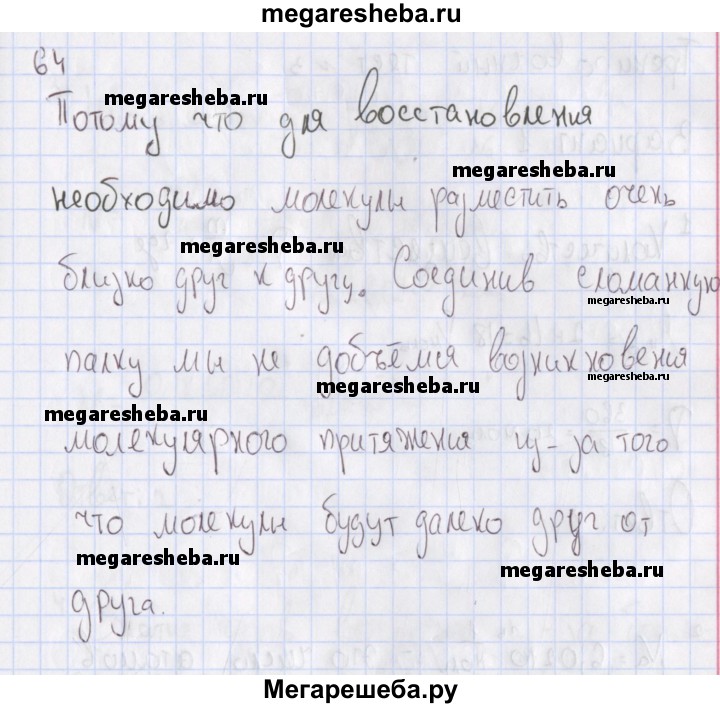 megaresheba.ru
64
megaresheba.ru
Потому что для восстановления
megaresheba.ru
необходимо молекулы разместить очень
megaresheba.ru
близко друг к другу. Соединив сломанную
megaresheba.ru
палку мы не добъёмся возникновения
megaresheba.ru
megaresheba.ru
megaresheba.ru
молекулярного притяжения из-за того
что молекулы будут далеко друг от
megaresheba.ru
megaresheba.ru
друга.
Мегарешеба.ру